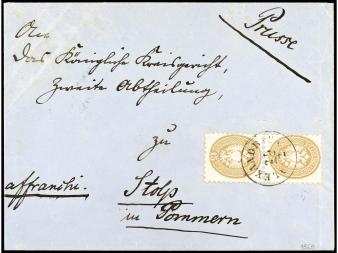 Prusse
An
das Königliche Kreisgericht,
Zweite Abtheilung,
zu
affranchi.
Stolp
in Pommern